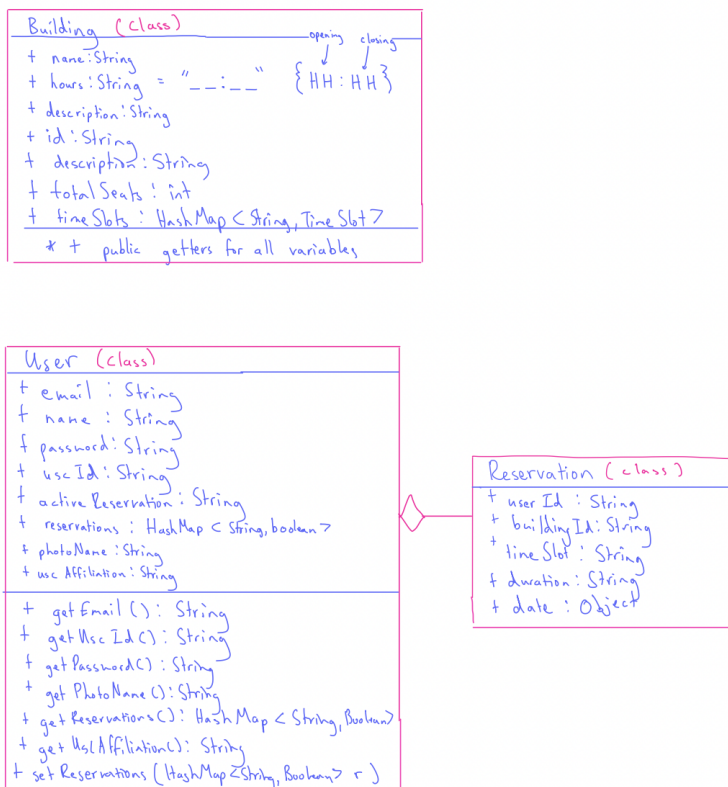 Building (class)
opening closing
+ name: String
+ hours: String = "__:__" {HH:HH}
+ description: String
+ id: String
+ description: String
+ totalSeats: int
+ timeSlots: HashMap<String, TimeSlot>
* + public getters for all variables
User (class)
+ email: String
+ name: String
+ password: String
+ uscId: String
+ activeReservation: String
+ reservations: HashMap<String, boolean>
+ photoName: String
+ uscAffiliation: String
+ getEmail(): String
+ getUscId(): String
+ getPassword(): String
+ getPhotoName(): String
+ getReservations(): HashMap<String, Boolean>
+ getUscAffiliation(): String
+ setReservations(HashMap<String, Boolean> r)
Reservation (class)
+ userId: String
+ buildingId: String
+ timeSlot: String
+ duration: String
+ date: Object